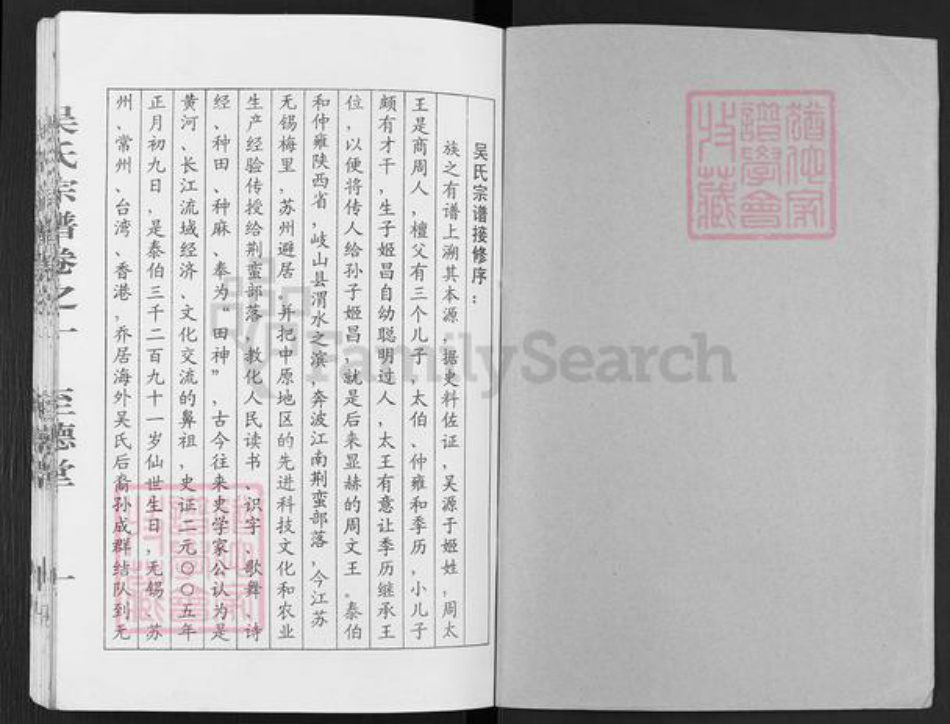 吴氏宗谱接修序:
族之有谱上溯其本源,据史料佐证,吴源于姬姓,周太
王是商周人,檀父有三个儿子,太伯、仲雍和季历,小儿子
颇有才干,生子姬昌自幼聪明过人,太王有意让季历继承王
位,以便将传人给孙子姬昌,就是后来显赫的周文王。泰伯
和仲雍陕西省,岐山县渭水之滨,奔波江南荆蛮部落,今江苏
无锡梅里,苏州避居。并把中原地区的先进科技文化和农业
生产经验传授给荆蛮部落,教化人民读书、识字、歌舞、诗
经、种田、种麻、奉为“田神”,古今往来史学家公认为是
黄河、长江流域经济、文化交流的鼻祖,史证二元〇〇五年
正月初九日,是泰伯三千二百九十一岁仙世生日,无锡、苏
州、常州、台湾、香港,乔居海外吴氏后裔孙成群结队到无
吴氏宗谱卷之一 至德堂 一
FamilySearch